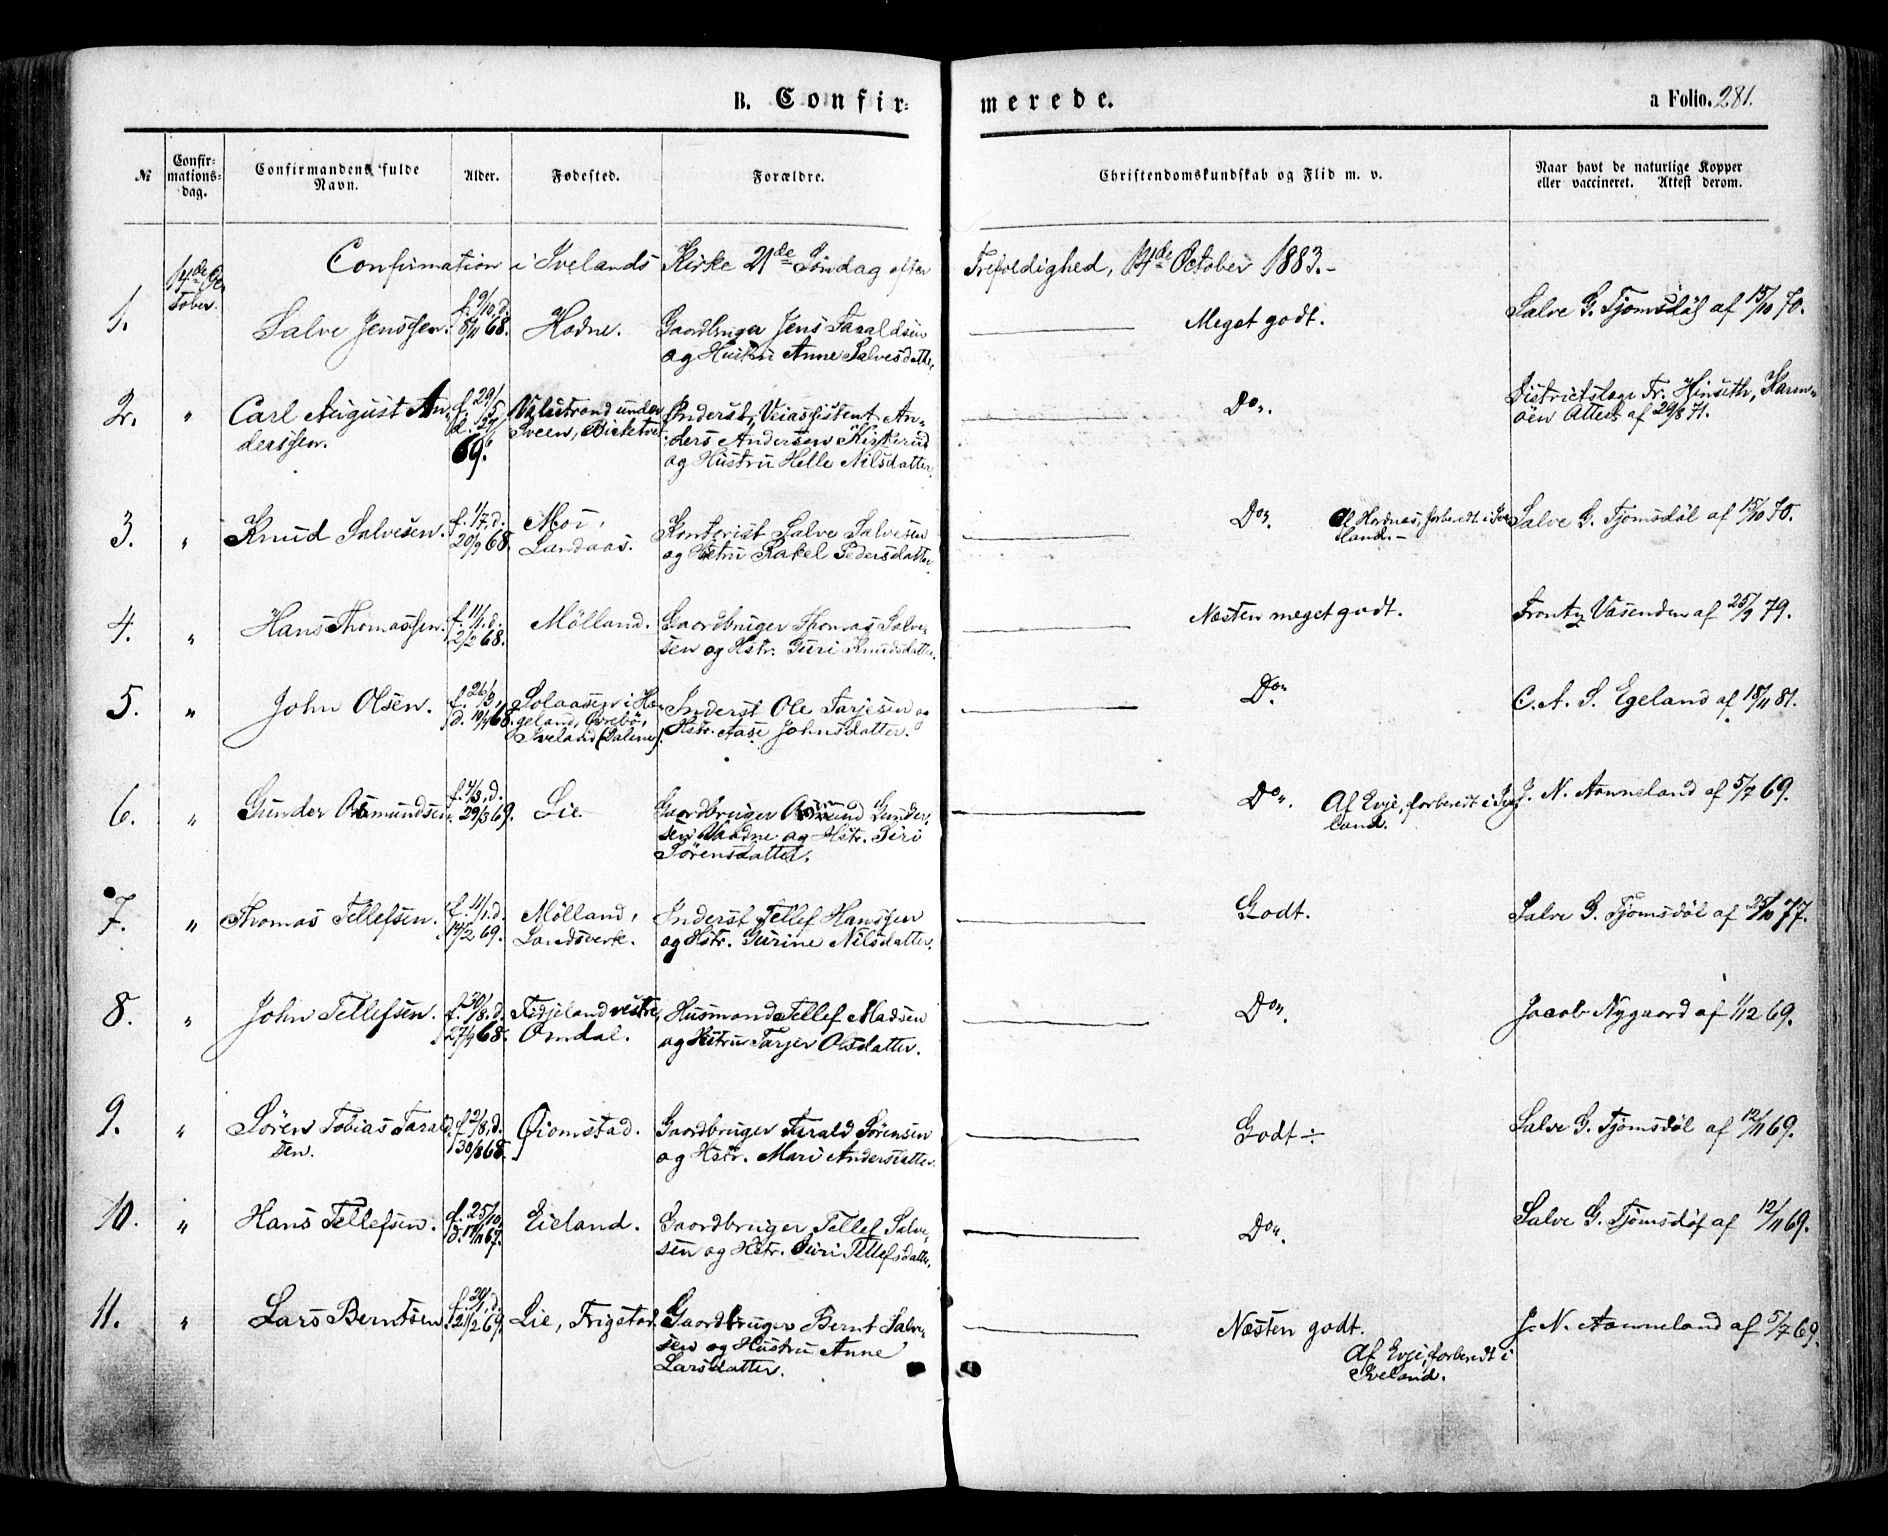 B. Confir-
merede.
a Folio. 281.
№
Confir-
mations-
dag.
Confirmandens fulde
Navn.
Alder.
Fødested.
Forældre.
Christendomskundskab og Flid m. v.
Naar havt de naturlige Kopper
eller vaccineret. Attest derom.
Confirmation i Ivelands Kirke 21de Søndag efter Trefoldighed, 14de October 1883.-
14de Oc-
tober.
1.
Salve Jenssen.
f. 9/10, d.
8/11 68.
Hodne.
Gaardbruger Jens Taraldsen
og Hustru Anne Salvesdatter.
Meget godt.
Salve G. Tjomsdøl af 15/10 70.
2. "
Carl August An-
derssen.
f. 29/5
d. 27/6
69.
under
Sveen,
Inderst, Veiassistent An-
ders Andersen Kirkerud
og Hustru Helle Nilsdatter.
Do.
Districtslæge Fr. Hinseth, Karm-
øen Attest af 29/8 71.
3. "
Knud Salvesen.
f. 1/7, d.
20/9 68.
Moi,
Landaas.
Kontorist Salve Salvesen
og Hstru Rakel Pedersdatter.
Do.
Af Hordnæs, forberedt i Ive-
land.-
Salve G. Tjomsdøl af 15/10 70.
4. "
Hans Thomassen.
f. 11/1, d.
2/2 68.
Mölland.
Gaardbruger Thomas Salve-
sen og Hstr. Guri Knudsdatter.
Næsten meget godt.
Vasenden af 25/9 79.
5. "
John Olsen.
f. 26/3,
d. 19/4 68.
Solaasen i Hæ-
geland, Øvrebö,
Iveland (Dalene).
Inderst Ole Tarjesen og
Hstr. Aase Johnsdatter.
Do.
C. A. S. Egeland af 18/11 81.
6. "
Gunder Osmundsen.
f. 4/3, d.
29/3 69.
Lie.
Gaardbruger Osmund Gunder-
sen og Hstr. Siri
Sörensdatter.
Do.
Af Evje, forberedt i Ive-
land.
J. N. Aanneland af 5/7 69.
7. "
Thomas Tellefsen.
f. 11/1, d.
14/2 69.
Mölland,
Landsverk.
Inderst Tellef Hanssen
og Hstr. Gurine Nilsdatter.
Godt.
Salve G. Tjomsdøl af 25/10 77.
8. "
John Tellefsen.
f. 30/8, d.
27/9 68.
Fidjeland vestre,
Omdal.
Husmand Tellef Madsen
og Hstru Tarjer Olsdatter.
Do.
Jacob Nygaard af 1/12 69.
9. "
Sören Tobias Tarald-
sen.
f. 2/8, d.
30/8 68.
Gaardbruger Tarald Sörensen
og Hstr. Mari Andersdatter.
Godt ÷
Salve G. Tjomsdøl af 12/11 69.
10. "
Hans Tellefsen.
f. 25/10,
d. 17/11 67.
Eieland.
Gaardbruger Tellef Salve-
sen og Hstr. Guri Tellefsdatter.
Do.
Salve G. Tjomsdøl af 12/11 69.
11. "
Lars Berntsen.
f. 29/1, d.
21/2 69.
Lie, Frigstad.
Gaardbruger Bernt Salve-
sen og Hustru Anne
Larsdatter.
Næsten godt.
Af Evje, forberedt i
Iveland.
J. N. Aanneland af 5/7 69.